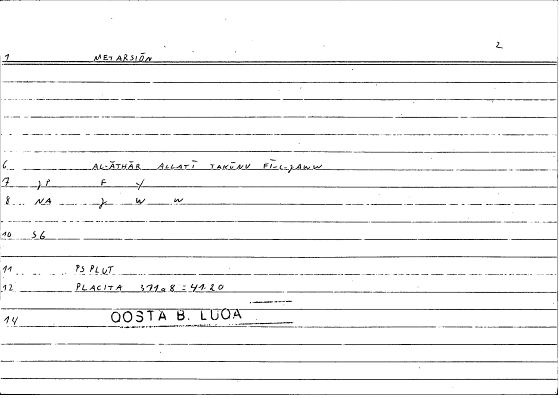 2
1 METARSIŌN
6 AL-ĀTHĀR ALLATĪ TAKŪNU FĪ-L-ǧAWW
7 ǧP F Y
8 NA ǧ W W
10 S6
11 PS PLUT
12 PLACITA 371a8 = 41.20
14 QOSTA B. LUQA